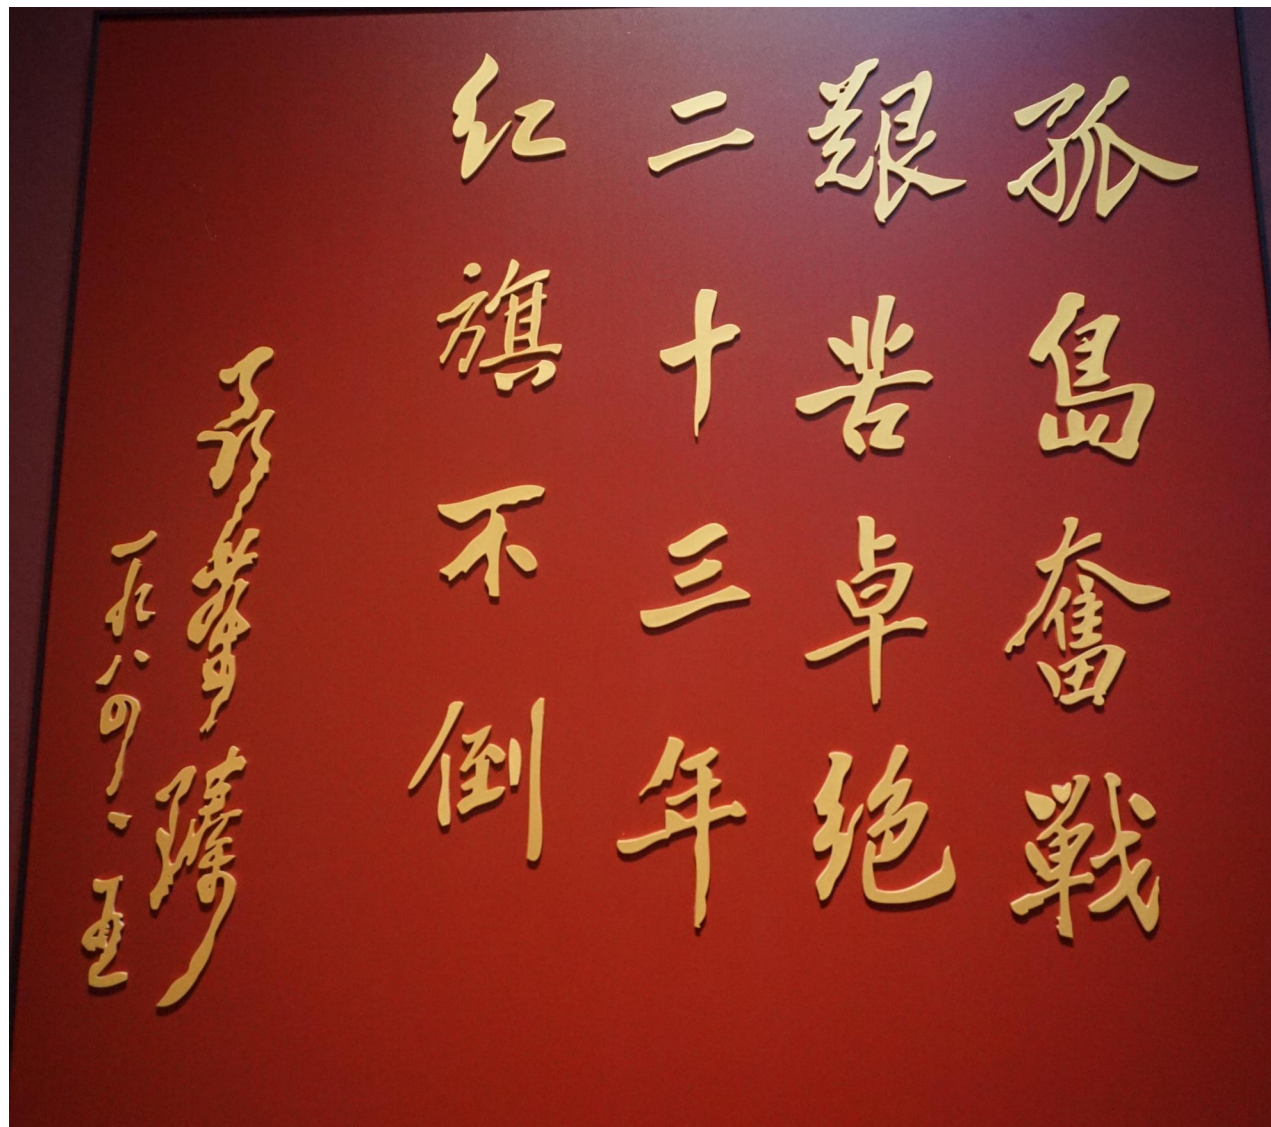 孤島奮戦
艱苦卓绝
二十三年
红旗不倒
聂荣臻
一九八四、一、五